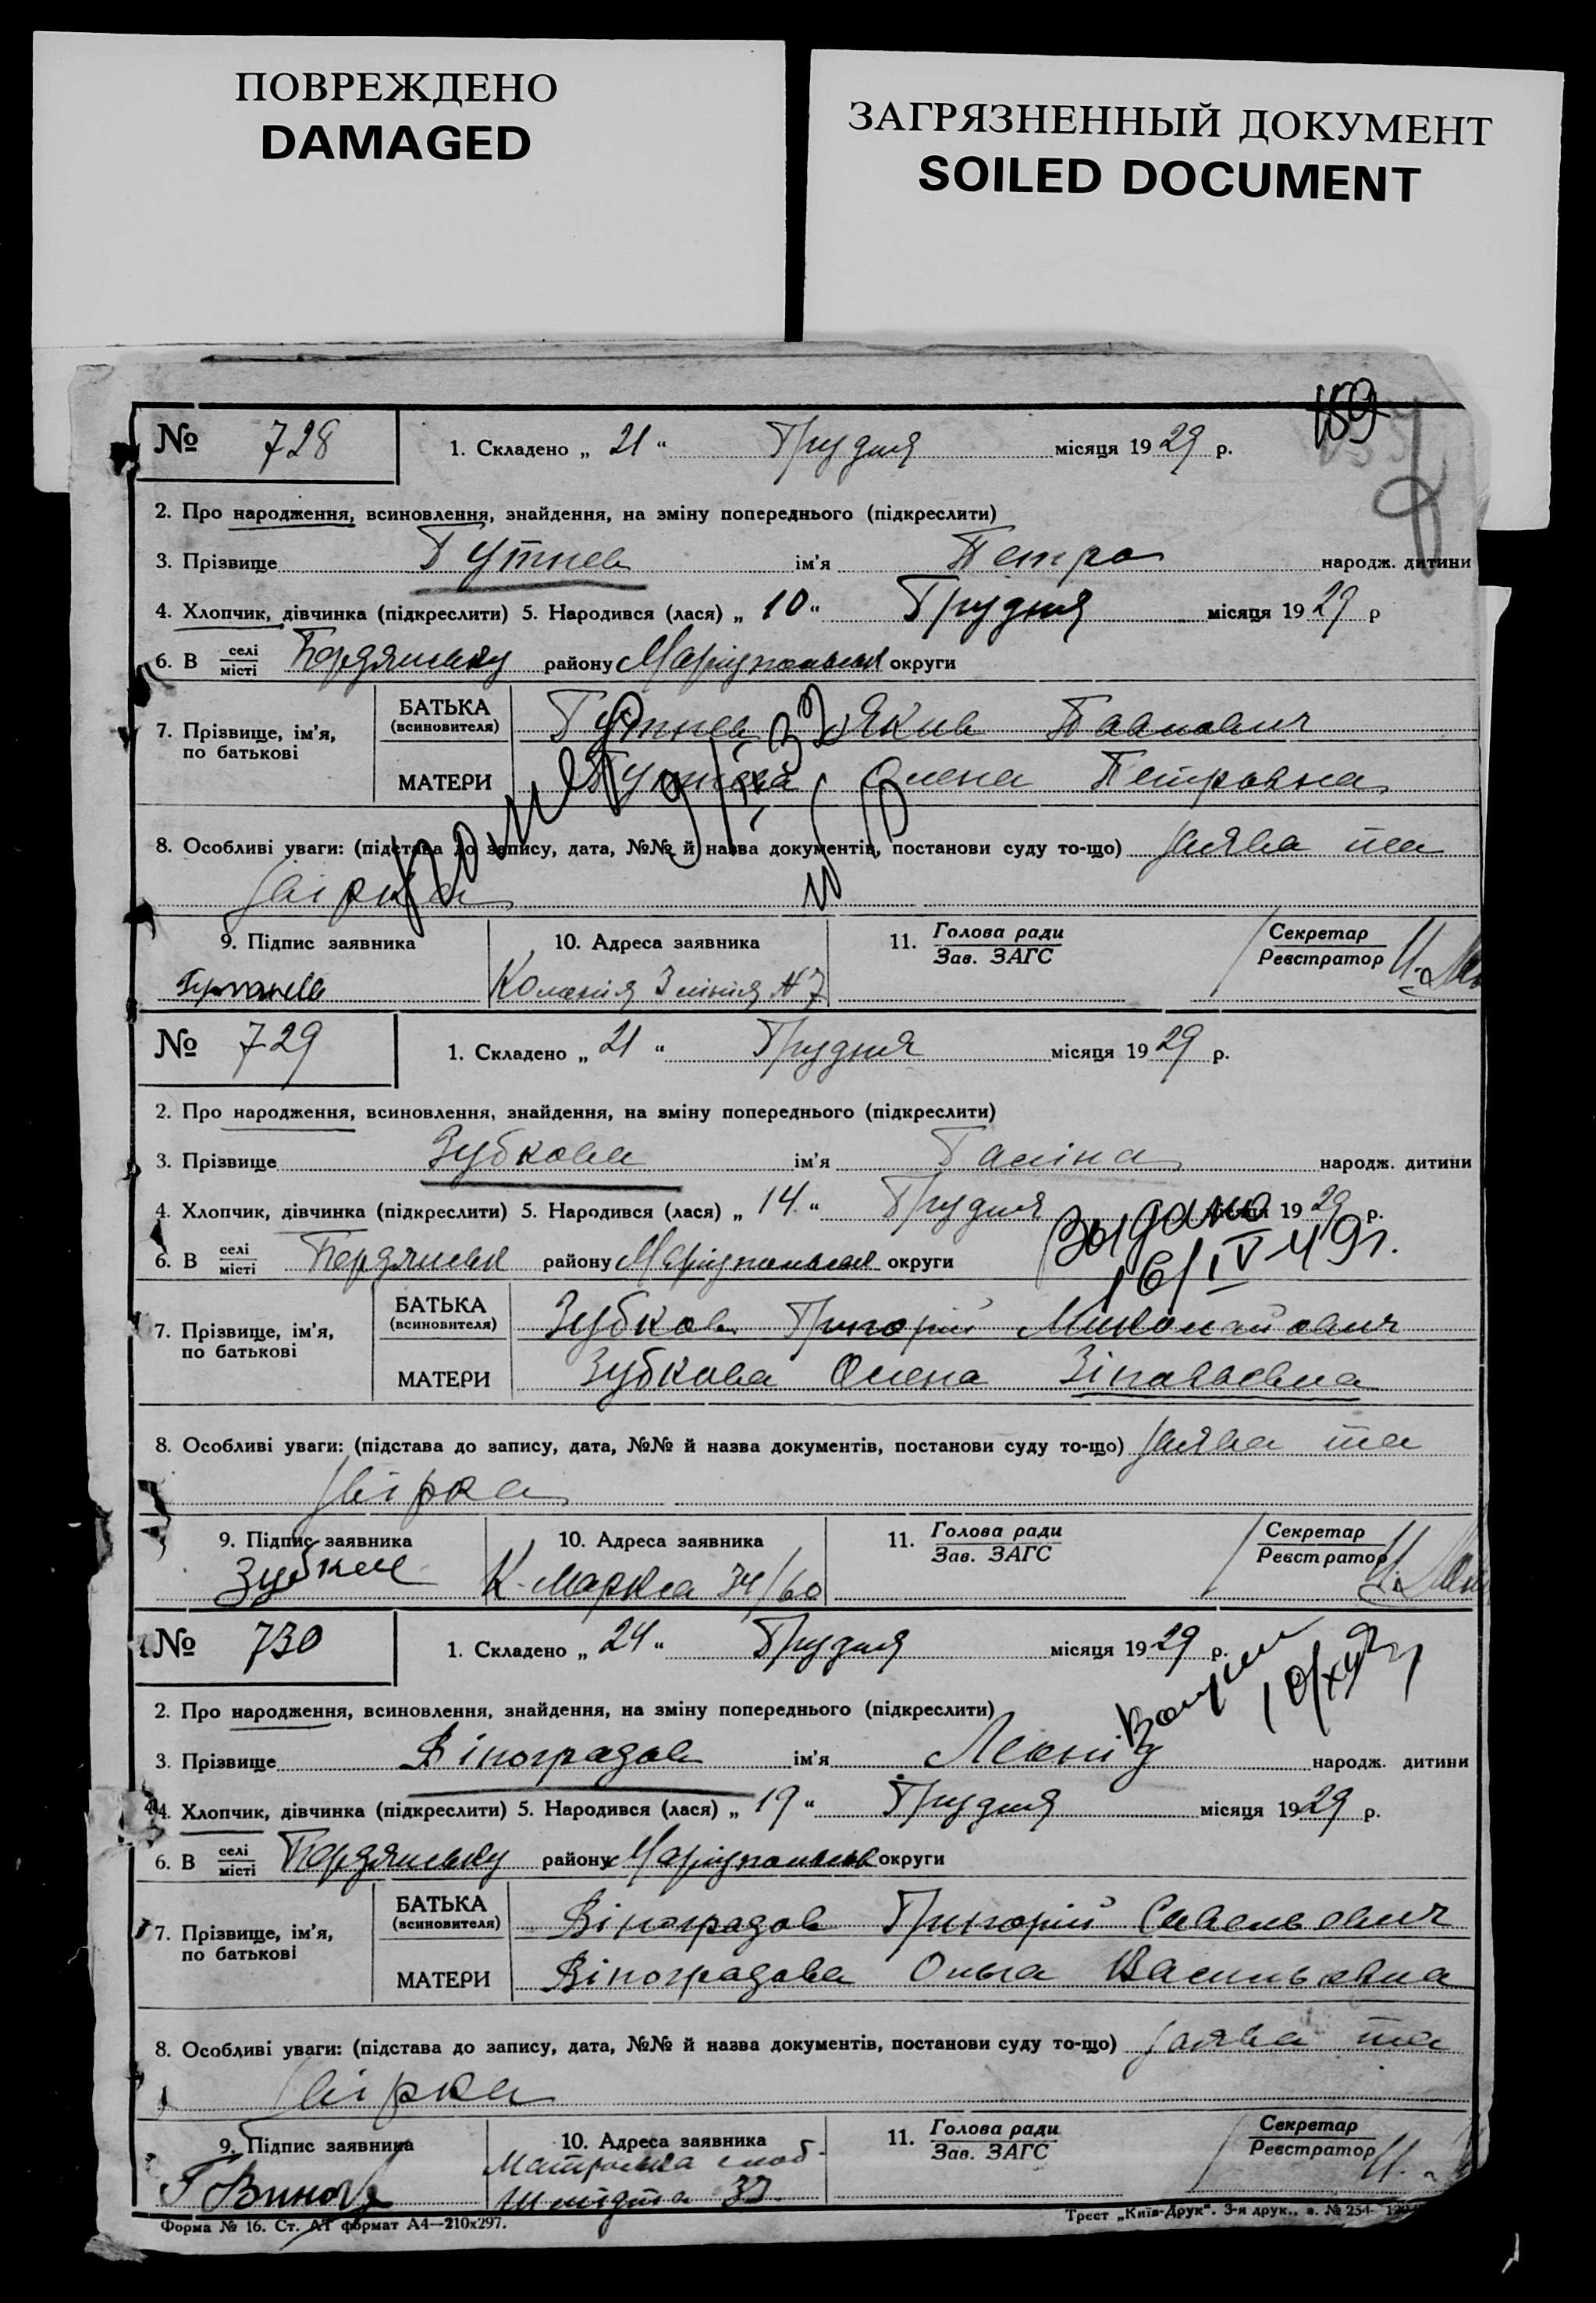 ПОВРЕЖДЕНО
DAMAGED
ЗАГРЯЗНЕННЫЙ ДОКУМЕНТ
SOILED DOCUMENT
159
№ 728 1. Складено „ 21 “ Грудня місяця 1929 р.
2. Про народження, всиновлення, знайдення, на зміну попереднього (підкреслити)
3. Прізвище Гутнев ім'я Петро народж. дитини
4. Хлопчик, дівчинка (підкреслити) 5. Народився (лася) „ 10 “ Грудня місяця 1929 р
6. В селі місті Бердянську району Маріупольськ округи
7. Прізвище, ім'я, по батькові БАТЬКА (всиновителя) Гутнев Яків Павлович
МАТЕРИ Гутнева Олена Петровна
помер 9/ІХ 32
8. Особливі уваги: (підстава до запису, дата, №№ й назва документів, постанови суду то-що) заява та
звірка
9. Підпис заявника 10. Адреса заявника 11. Голова ради Зав. ЗАГС Секретар Реєстратор
Колонія 3 лінія № 7
№ 729 1. Складено „ 21 “ Грудня місяця 1929 р.
2. Про народження, всиновлення, знайдення, на зміну попереднього (підкреслити)
3. Прізвище Зубкова ім'я Галіна народж. дитини
4. Хлопчик, дівчинка (підкреслити) 5. Народився (лася) „ 14 “ Грудня місяця 1929 р.
Выдано
16/IV 49г.
6. В селі місті Бердянськ району Маріупольськ округи
7. Прізвище, ім'я, по батькові БАТЬКА (всиновителя) Зубков Григорій Миколайович
МАТЕРИ Зубкова Олена
8. Особливі уваги: (підстава до запису, дата, №№ й назва документів, постанови суду то-що) заява та
звірка
9. Підпис заявника 10. Адреса заявника 11. Голова ради Зав. ЗАГС Секретар Реєстратор
К. Маркса 34/60
№ 730 1. Складено „ 24 “ Грудня місяця 1929 р.
2. Про народження, всиновлення, знайдення, на зміну попереднього (підкреслити)
3. Прізвище Віноградов ім'я Леонід народж. дитини
4. Хлопчик, дівчинка (підкреслити) 5. Народився (лася) „ 19 “ Грудня місяця 1929 р.
6. В селі місті Бердянську району Маріупольськ округи
7. Прізвище, ім'я, по батькові БАТЬКА (всиновителя) Віноградов Григорій Савельович
МАТЕРИ Віноградова Ольга Васильовна
8. Особливі уваги: (підстава до запису, дата, №№ й назва документів, постанови суду то-що) заява та
звірка
9. Підпис заявника 10. Адреса заявника 11. Голова ради Зав. ЗАГС Секретар Реєстратор
Матроська слоб.
Шмідта 33
Форма № 16. Ст. АТ формат А4—210х297.
Трест „Київ-Друк“. 3-я друк., з. № 254-